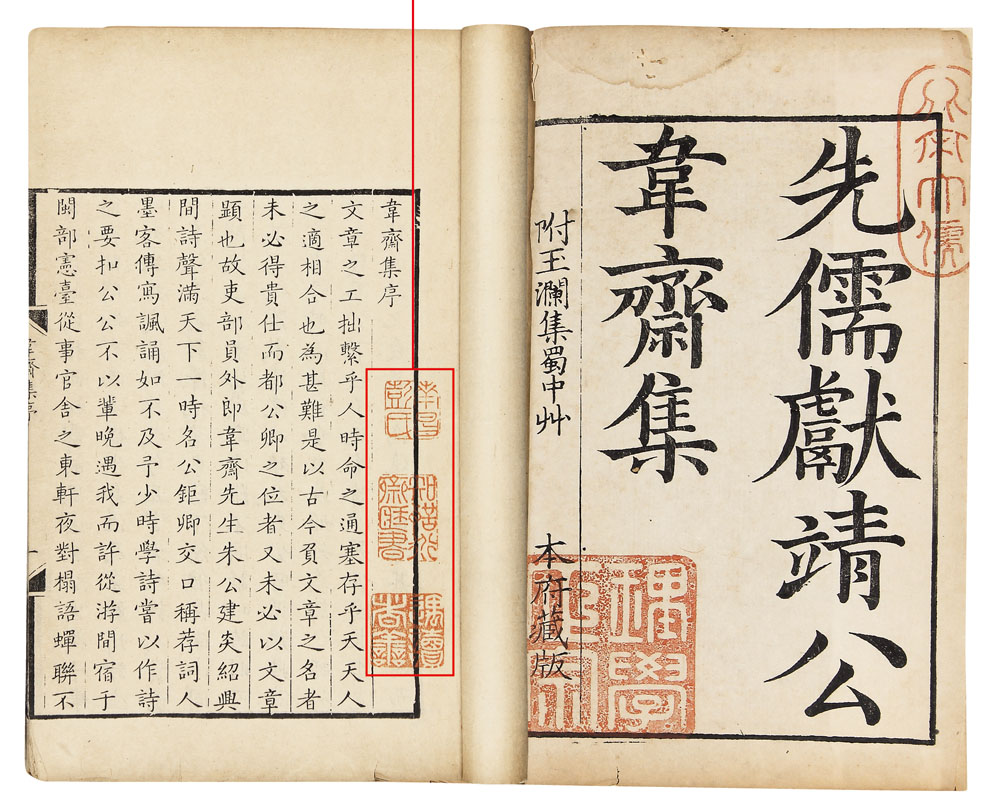 先儒獻靖公
韋齋集
附玉瀾集蜀中艸
本府藏版
韋齋集序
文章之工拙繫乎人時命之通塞存乎天天人
之適相合也為甚難是以古今負文章之名者
未必得貴仕而都公卿之位者又未必以文章
顯也故吏部員外郎韋齋先生朱公建炎紹興
間詩聲滿天下一時名公鉅卿交口稱荐詞人
墨客傳寫諷誦如不及予少時學詩嘗以作詩
之要扣公公不以輩晚遇我而許從游間宿于
閩部憲臺從事官舍之東軒夜對榻語蟬聯不
南昌彭氏
知聖道齋藏書
遇讀者善
韋齋集序